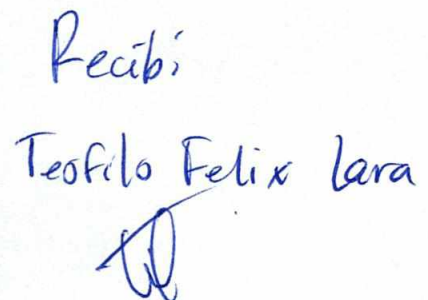 Recibi
Teofilo Felix Lara